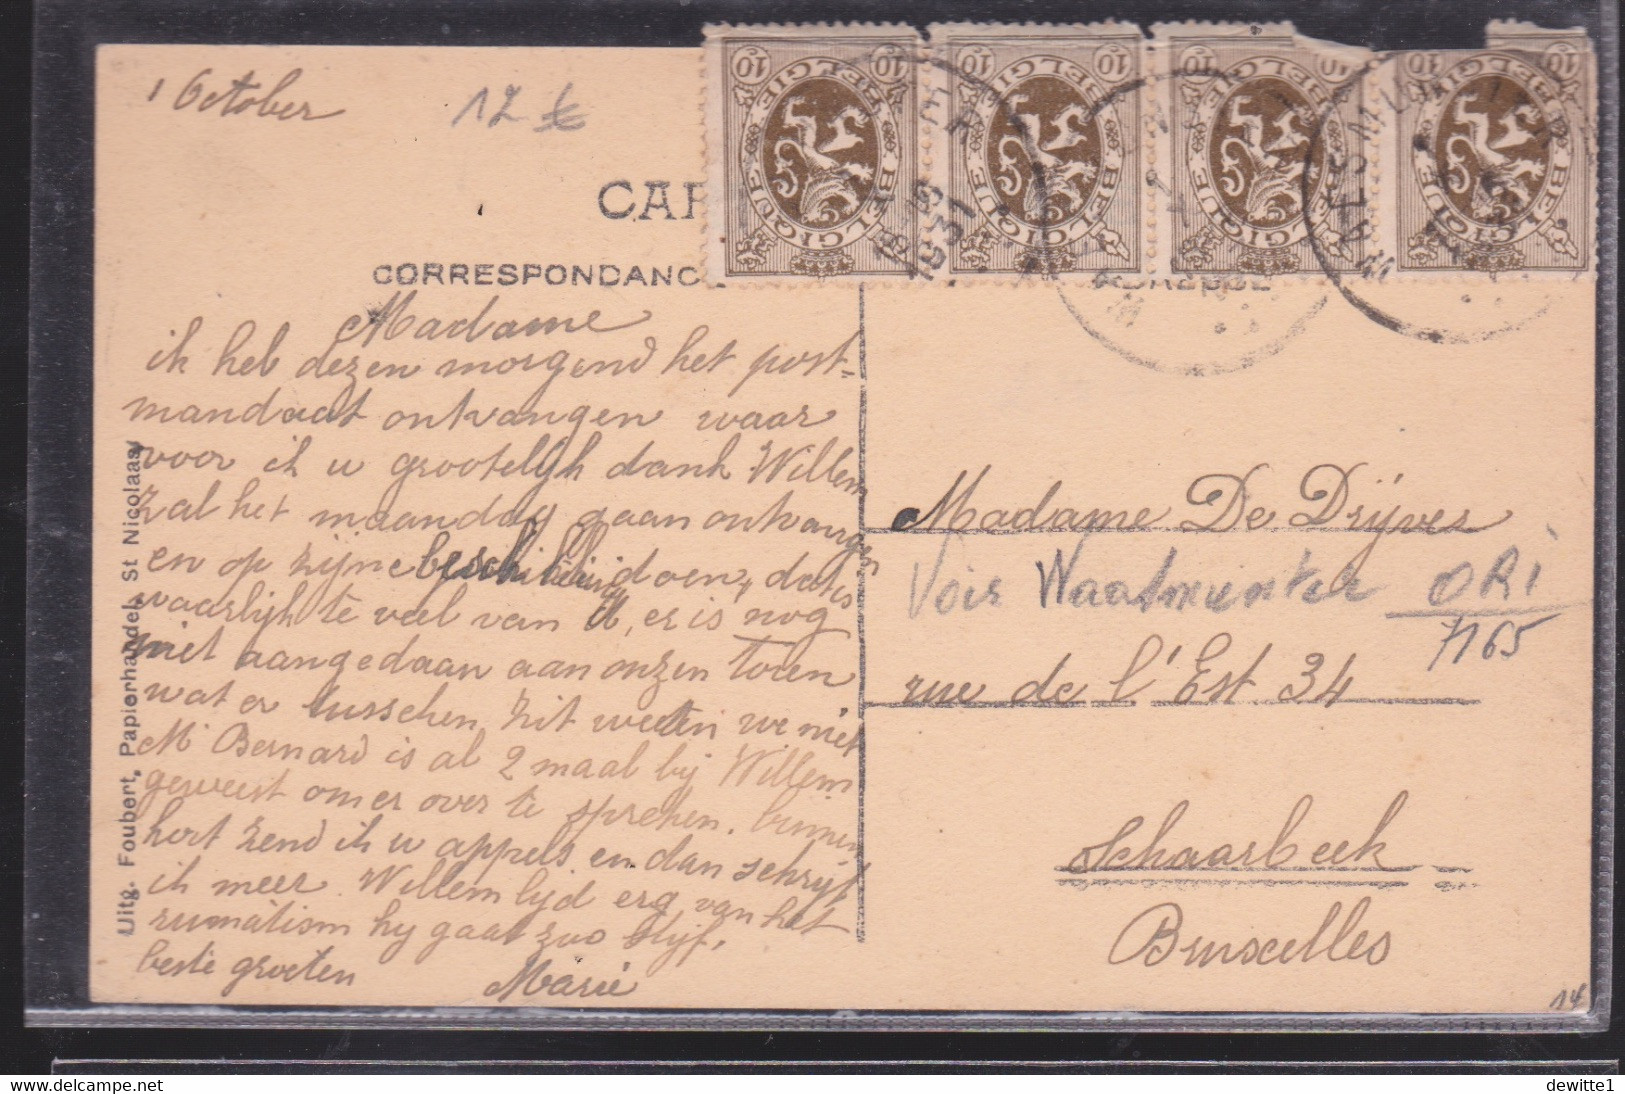 1 October
12 €
CAR
CORRESPONDANC
Madame
ik heb dezen morgend het post-
mandaat ontvangen waar
voor ik u grootelijk dank Willem
zal het maandag gaan ontvangen
en op zijne beschikking doen, dat is
waarlijk te veel van U, er is nog
niet aangedaan aan onzen toren
wat er tusschen zit weeten we niet
Mr Bernard is al 2 maal bij Willem
geweest om er over te spreken. binnen
kort zend ik u appels en dan schrijf
ik meer. Willem lijd erg van het
rumatism hij gaat zoo stijf.
beste groeten Marie
Uitg. Foubert, Papierhandel, St Nicolaas
10c 10c
BELGIE BELGIQUE
10c 10c
BELGIE BELGIQUE
10c 10c
BELGIE BELGIQUE
10c 10c
BELGIE BELGIQUE
1931
WAESMUNSTER
Madame De Drijver
Voir Waasmunster ORi
7165
rue de l'Est 34
Schaarbeek
Bruxelles
14
dewitte1